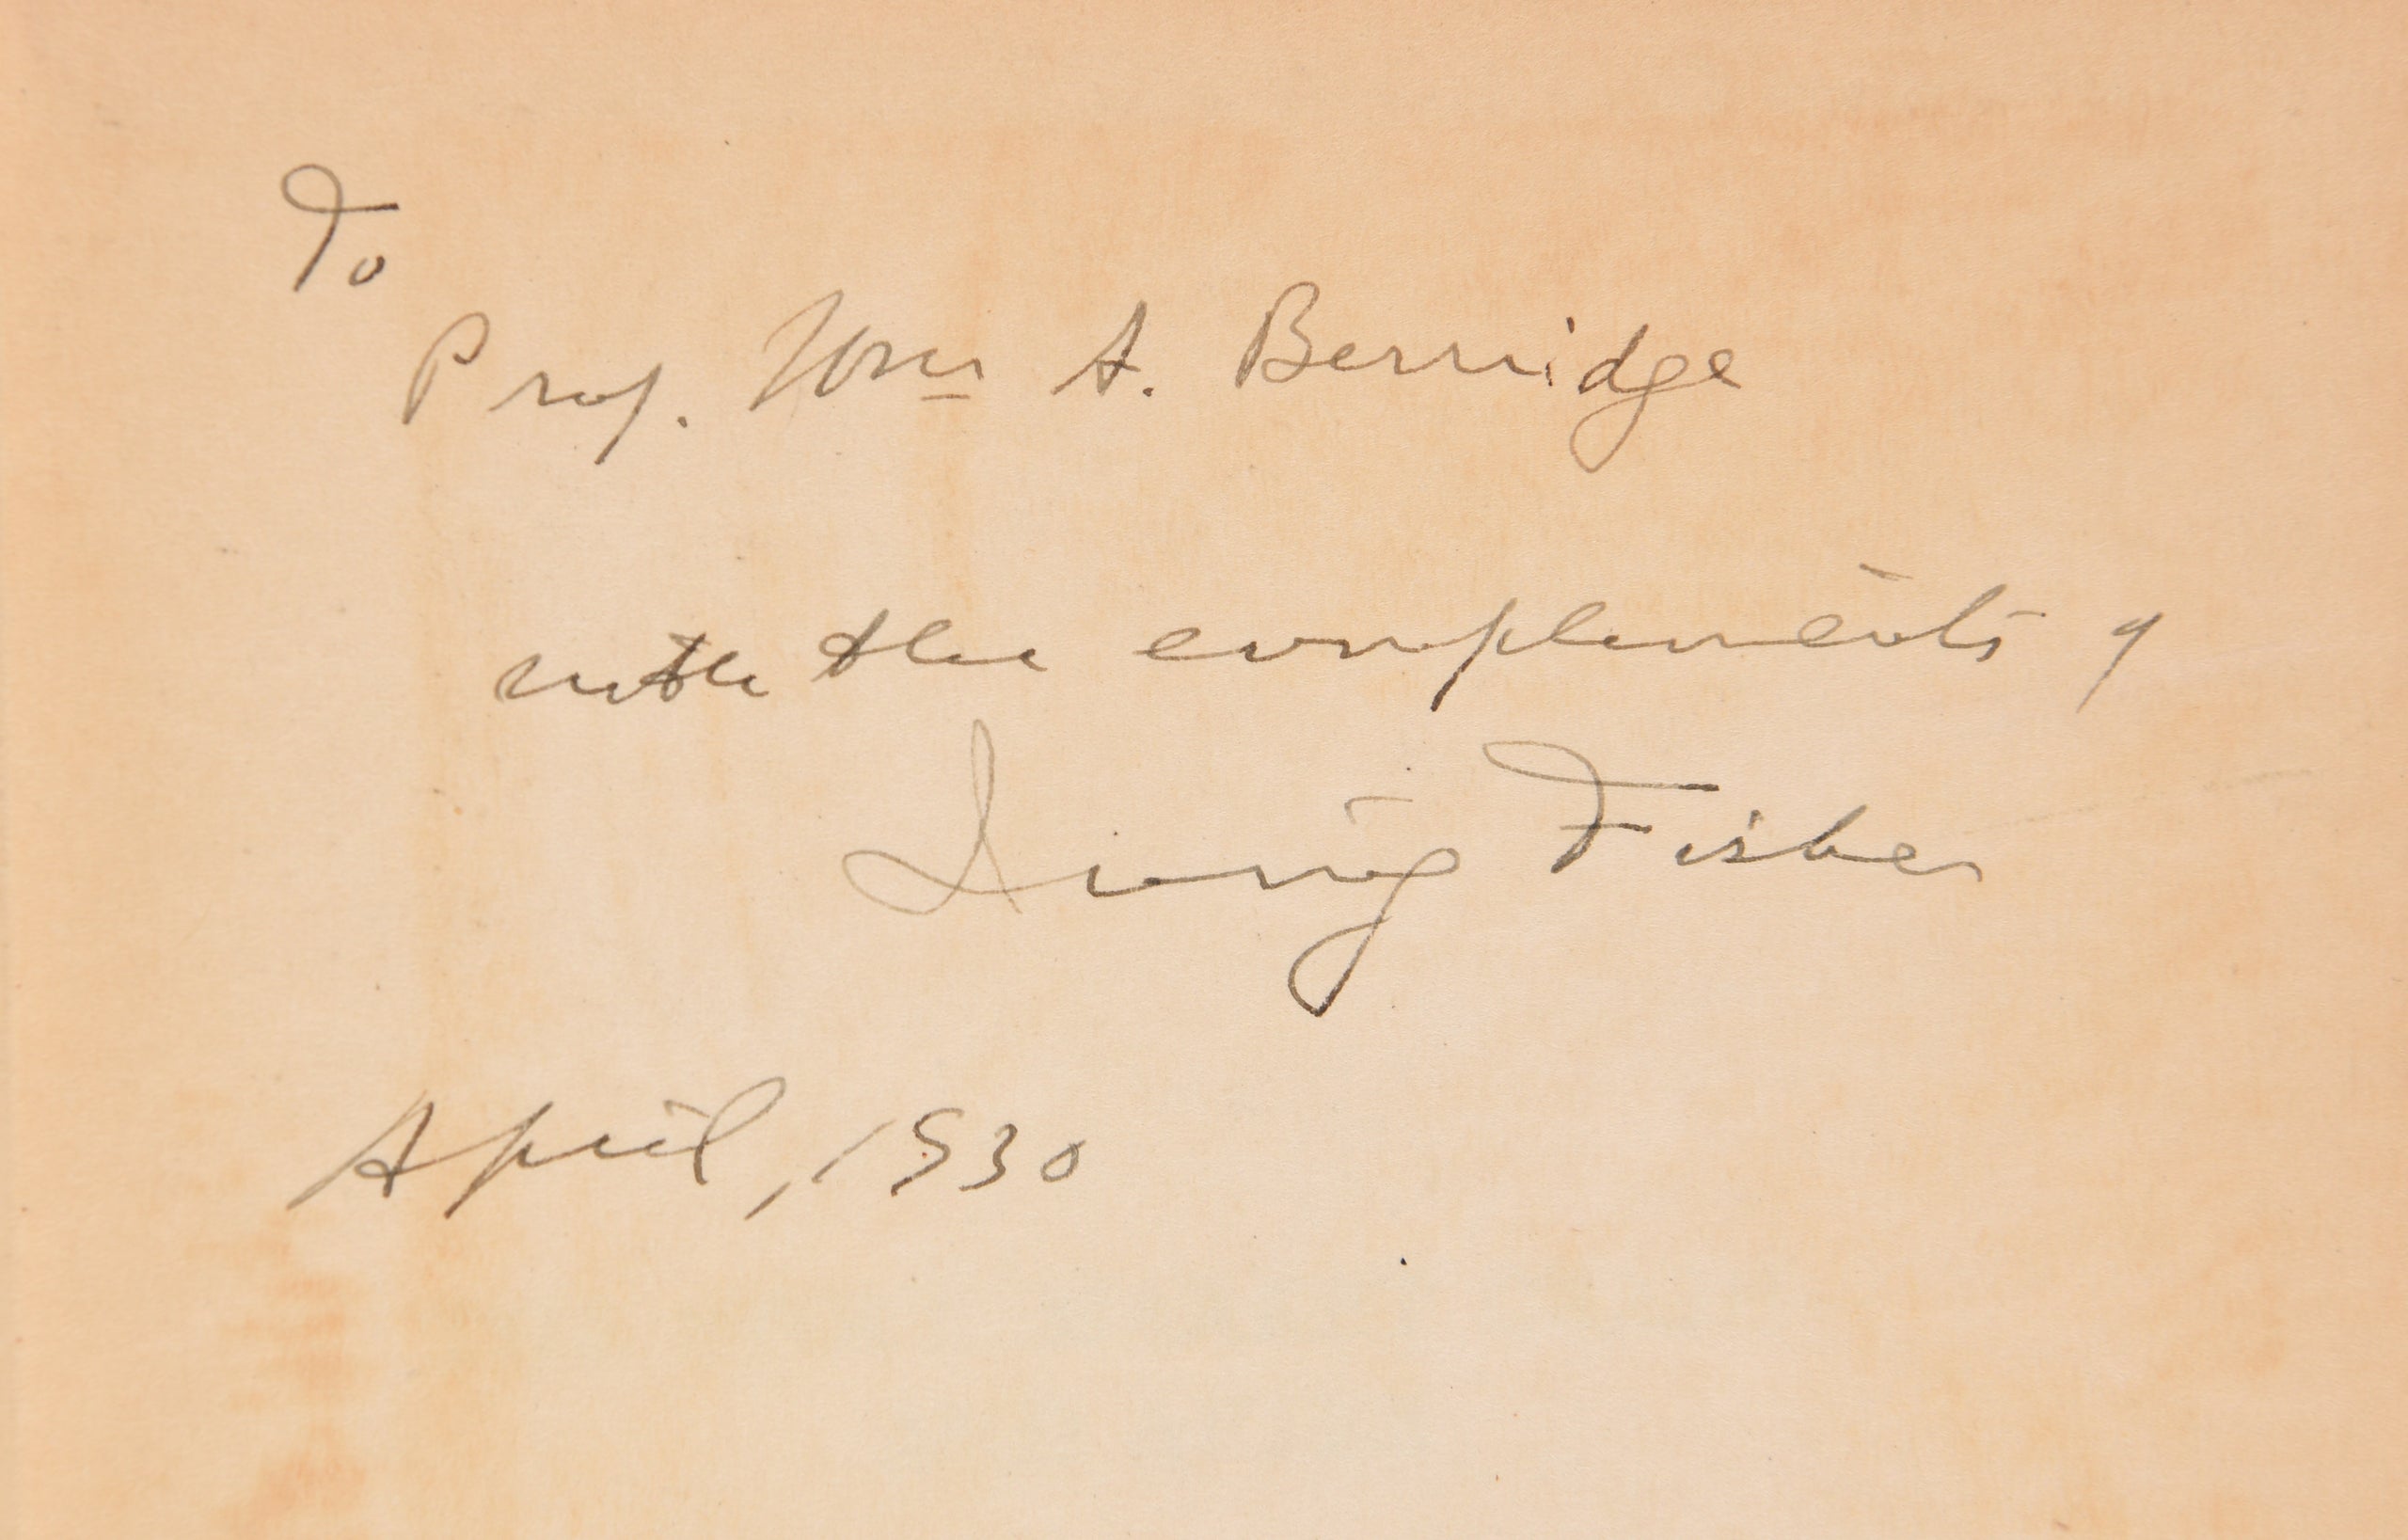 To
Prof. Wm A. Berridge
with the compliments of
Irving Fisher
April, 1930